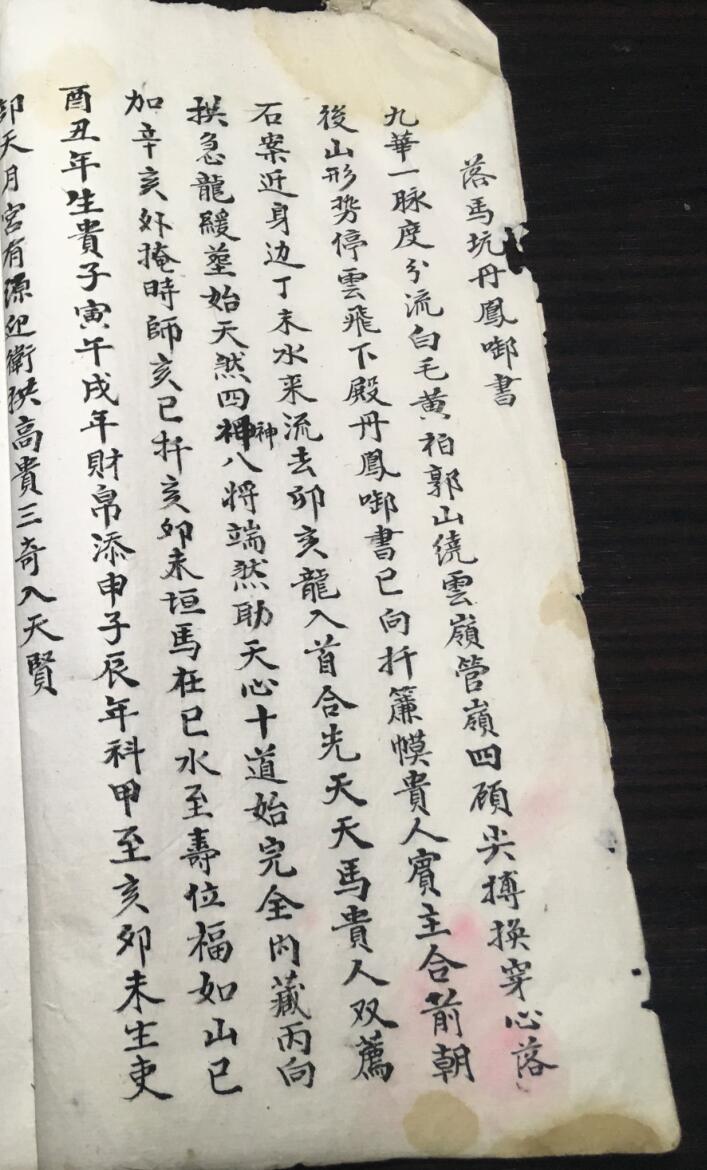 落馬坑丹鳳啣書
九華一脉度分流白毛黃柏郭山繞雲嶺管嶺四顧尖搏換穿心落
後山形势停雲飛下殿丹鳳啣書已向扦簾幙貴人賓主合前朝
石案近身边丁未水来流去卯亥龍入首合先天天馬貴人双薦
拱急龍緩塟始天然四神八将端然助天心十道始完全内藏丙向
加辛亥外掩時師亥已扦亥卯未垣馬在已水至壽位福如山已
酉丑年生貴子寅午戌年財帛添申子辰年科甲至亥卯未生吏
卸天月宮有源迎衛拱高貴三奇入天賢